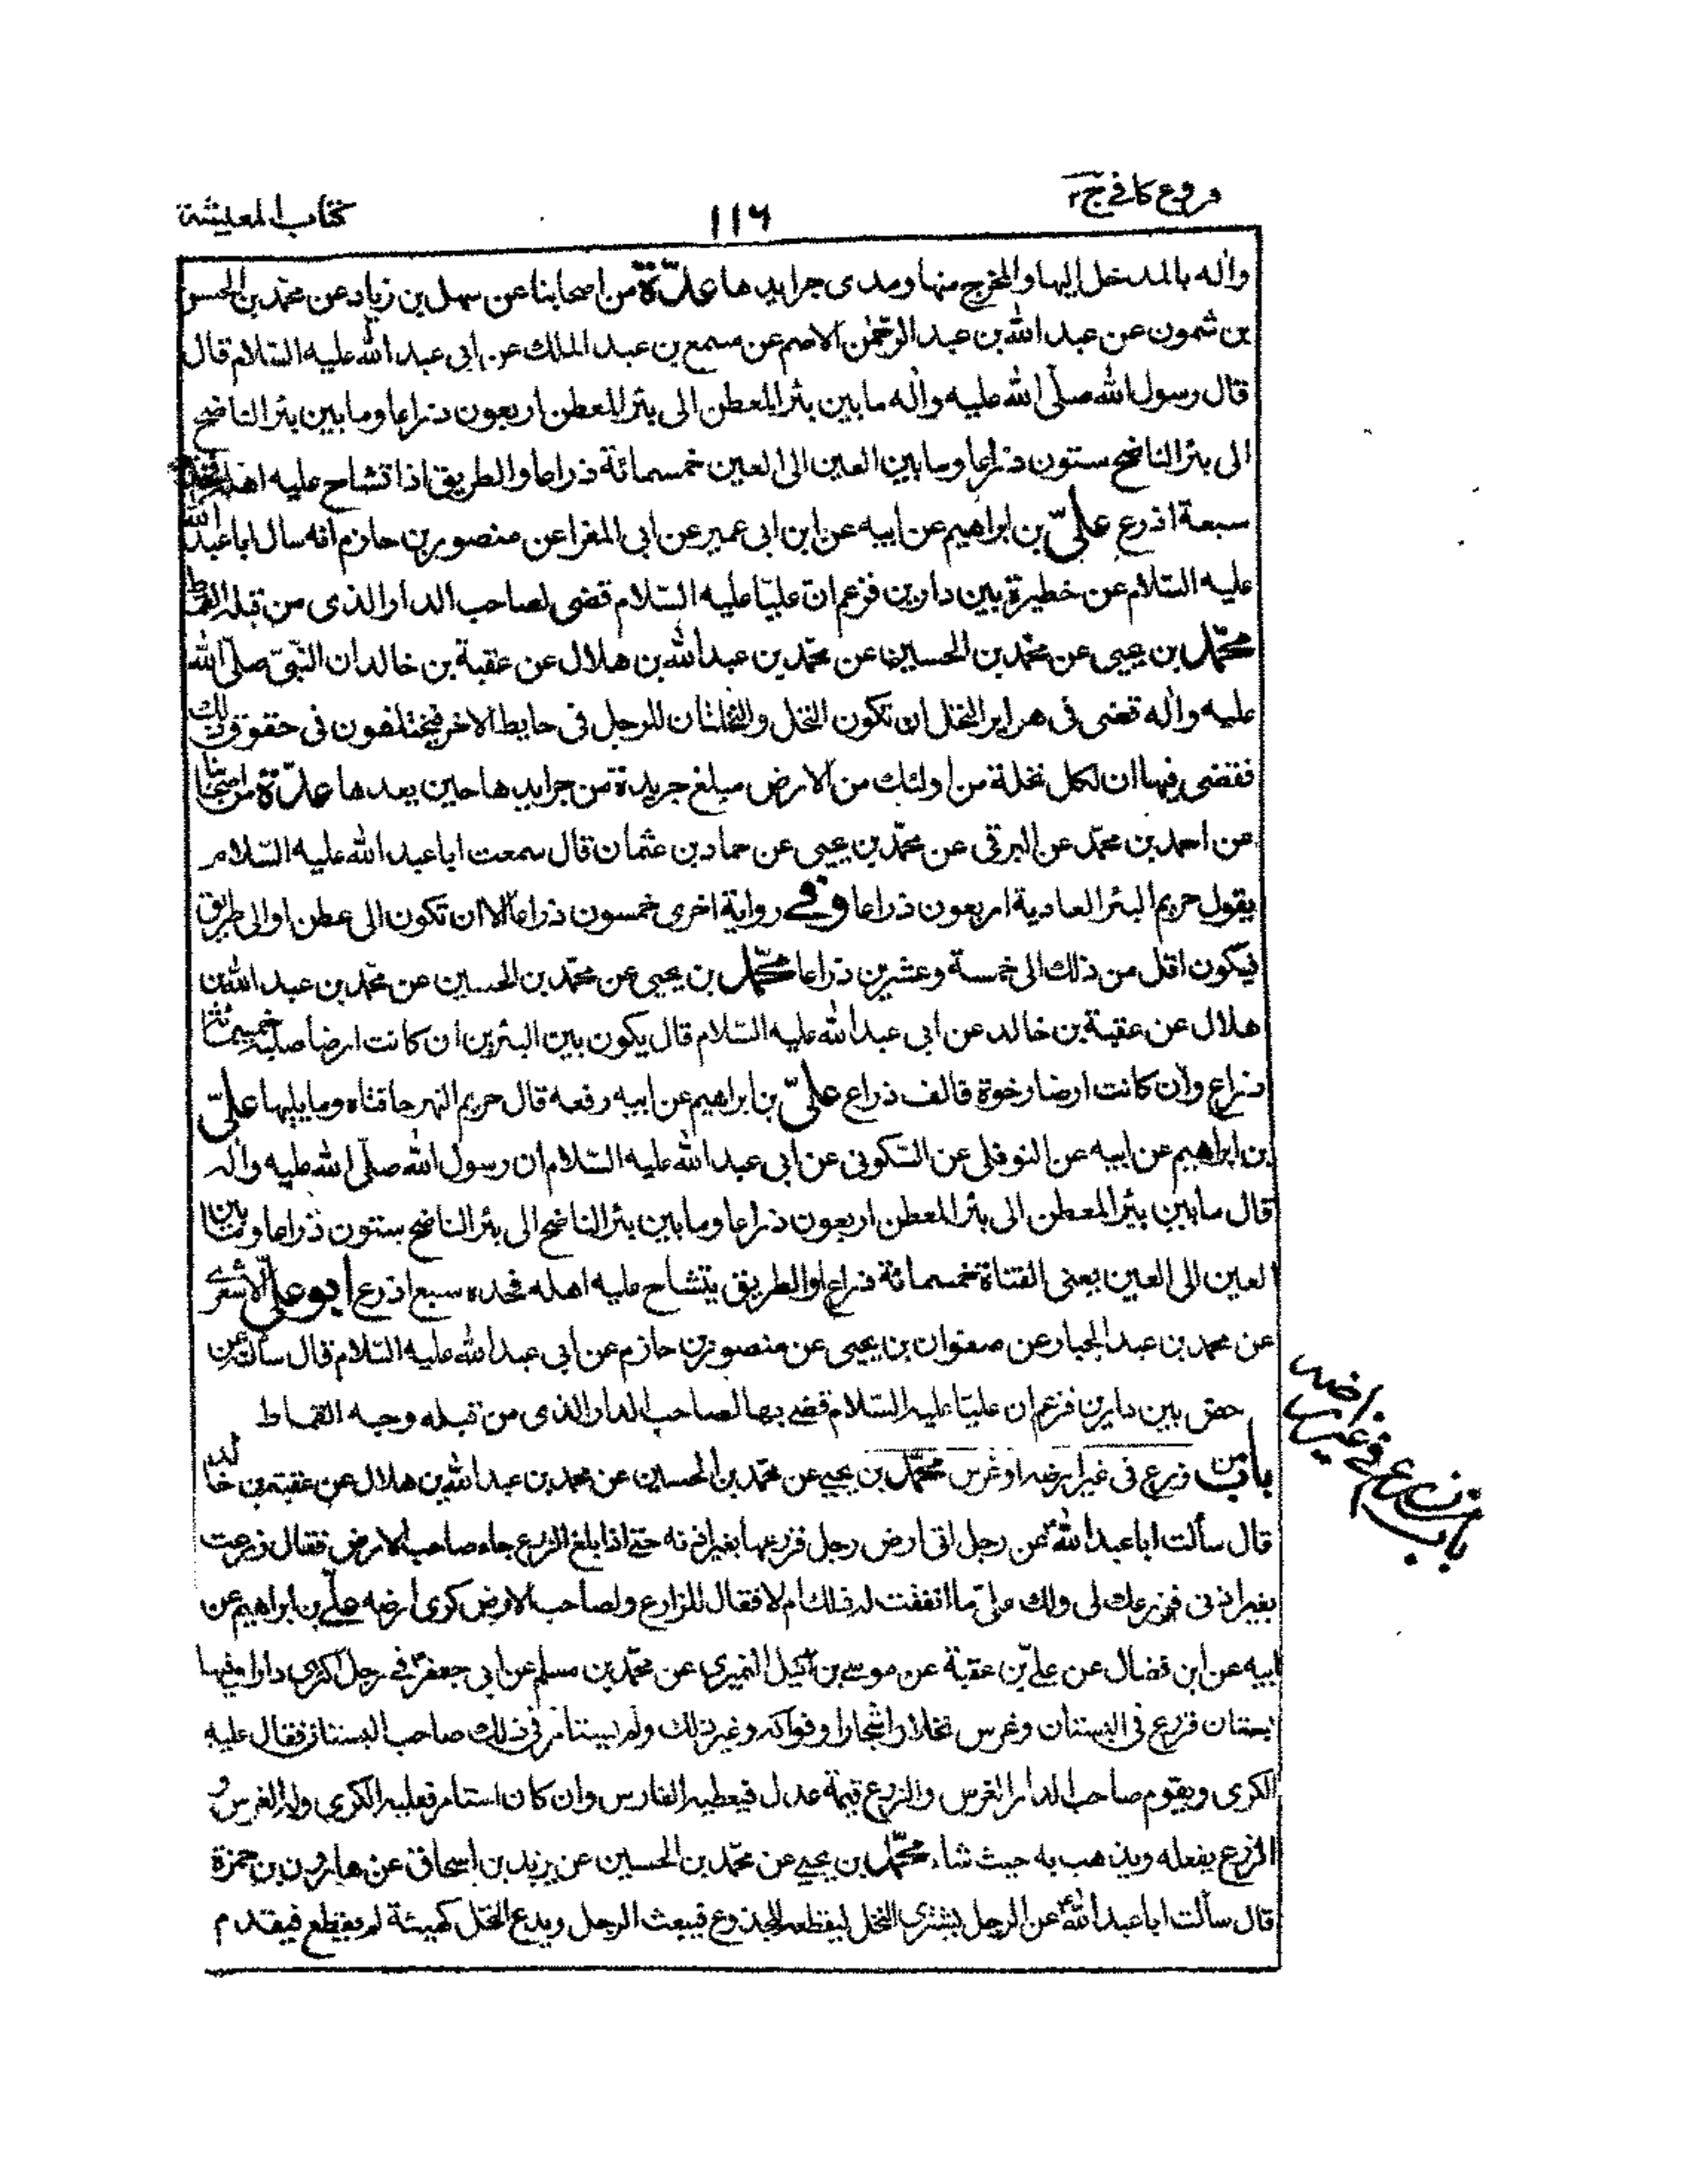 فروع كافي ج٢
١١٦
كتاب المعيشة
وآله بالمدخل اليها والمخرج منها ومدى جرايدها عدّة من اصحابنا عن سهل بن زياد عن محمّد بن الحسن
بن شمون عن عبد الله بن عبد الرّحمٰن الاصم عن مسمع بن عبد الملك عن ابى عبد الله عليه السّلام قال
قال رسول الله صلّى الله عليه وآله ما بين بئر المعطن الى بئر المعطن اربعون ذراعا وما بين بئر الناضح
الى بئر الناضح ستون ذراعا وما بين العين الى العين خمسمائة ذراعا والطريق اذا تشاح عليه اهله
سبعة اذرع علىّ بن ابراهيم عن ابيه عن ابن ابى عمير عن ابى المغرا عن منصور بن حازم انه سال ابا عبد الله
عليه السّلام عن خطيرة بين دارين فزعم ان عليّا عليه السّلام قضى لصاحب الدار الذى من قبله القماط
محمّد بن يحيى عن محمّد بن الحسين عن محمّد بن عبد الله بن هلال عن عقبة بن خالد ان النّبىّ صلّى الله
عليه وآله قضى فى هراير النخل ان تكون النخل والنخلتان للرجل فى حايط الاخر فيختلفون فى حقوق ذلك
فقضى فيها ان لكل نخلة من اولئك من الارض مبلغ جريدة من جرايدها حين يعدها عدّة من اصحابنا
عن احمد بن محمّد عن البرقى عن محمّد بن يحيى عن حماد بن عثمان قال سمعت ابا عبد الله عليه السّلام
يقول حريم البئر العادية اربعون ذراعا وفى رواية اخرى خمسون ذراعا الّا ان تكون الى عطن او الى طريق
فيكون اقل من ذلك الى خمسة وعشرين ذراعا محمّد بن يحيى عن محمّد بن الحسين عن محمّد بن عبد الله بن
هلال عن عقبة بن خالد عن ابى عبد الله عليه السّلام قال يكون بين البئرين ان كانت ارضا صلبة خمسمائة
ذراع وان كانت ارضا رخوة فالف ذراع علىّ بن ابراهيم عن ابيه رفعه قال حريم النهر حافتاه وما يليها علىّ
بن ابراهيم عن ابيه عن النوفلى عن السّكونى عن ابى عبد الله عليه السّلام ان رسول الله صلّى الله عليه وآله
قال ما بين بئر المعطن الى بئر المعطن اربعون ذراعا وما بين بئر الناضح الى بئر الناضح ستون ذراعا وما بين
العين الى العين يعنى القناة خمسمائة ذراع والطريق يتشاح عليه اهله فحده سبع اذرع ابو علىّ الاشعرى
عن محمد بن عبد الجبار عن صفوان بن يحيى عن منصور بن حازم عن ابى عبد الله عليه السّلام قال سألته عن
حض بين دارين فزعم ان عليّا عليه السّلام قضى بها لصاحب الدار الذى من قبله وجه القماط
باب من زرع فى غير ارضه او غرس محمّد بن يحيى عن محمّد بن الحسين عن محمد بن عبد الله بن هلال عن عقبة بن خالد
قال سألت ابا عبد الله ع عن رجل اتى ارض رجل فزرعها بغير اذنه حتى اذا بلغ الزرع جاء صاحب الارض فقال زرعت
بغير اذنى فزرعك لى ولك علىّ ما انفقت له ذلك ام لا فقال للزارع ولصاحب الارض كرى ارضه علىّ بن ابراهيم عن
ابيه عن ابن فضال عن علىّ بن عقبة عن موسى بن اكيل النميرى عن محمّد بن مسلم عن ابى جعفر ع فى رجل اكترى دارا وفيها
بستان فزرع فى البستان وغرس نخلا واشجارا وفواكه وغير ذلك ولم يستامر فى ذلك صاحب البستان فقال عليه
الكرى ويقوم صاحب الدار الغرس والزرع قيمة عدل فيعطيه الغارس وان كان استامر فعليه الكرى وله الغرس و
الزرع يفعله ويذهب به حيث شاء محمّد بن يحيى عن محمّد بن الحسين عن يزيد بن اسحاق عن هارون بن حمزة
قال سألت ابا عبد الله ع عن الرجل يشترى النخل ليقطعه للجذوع فيبعث الرجل ويدع النخل كهيئة لم يقطع فيقدم
باب من زرع فى غير ارضه